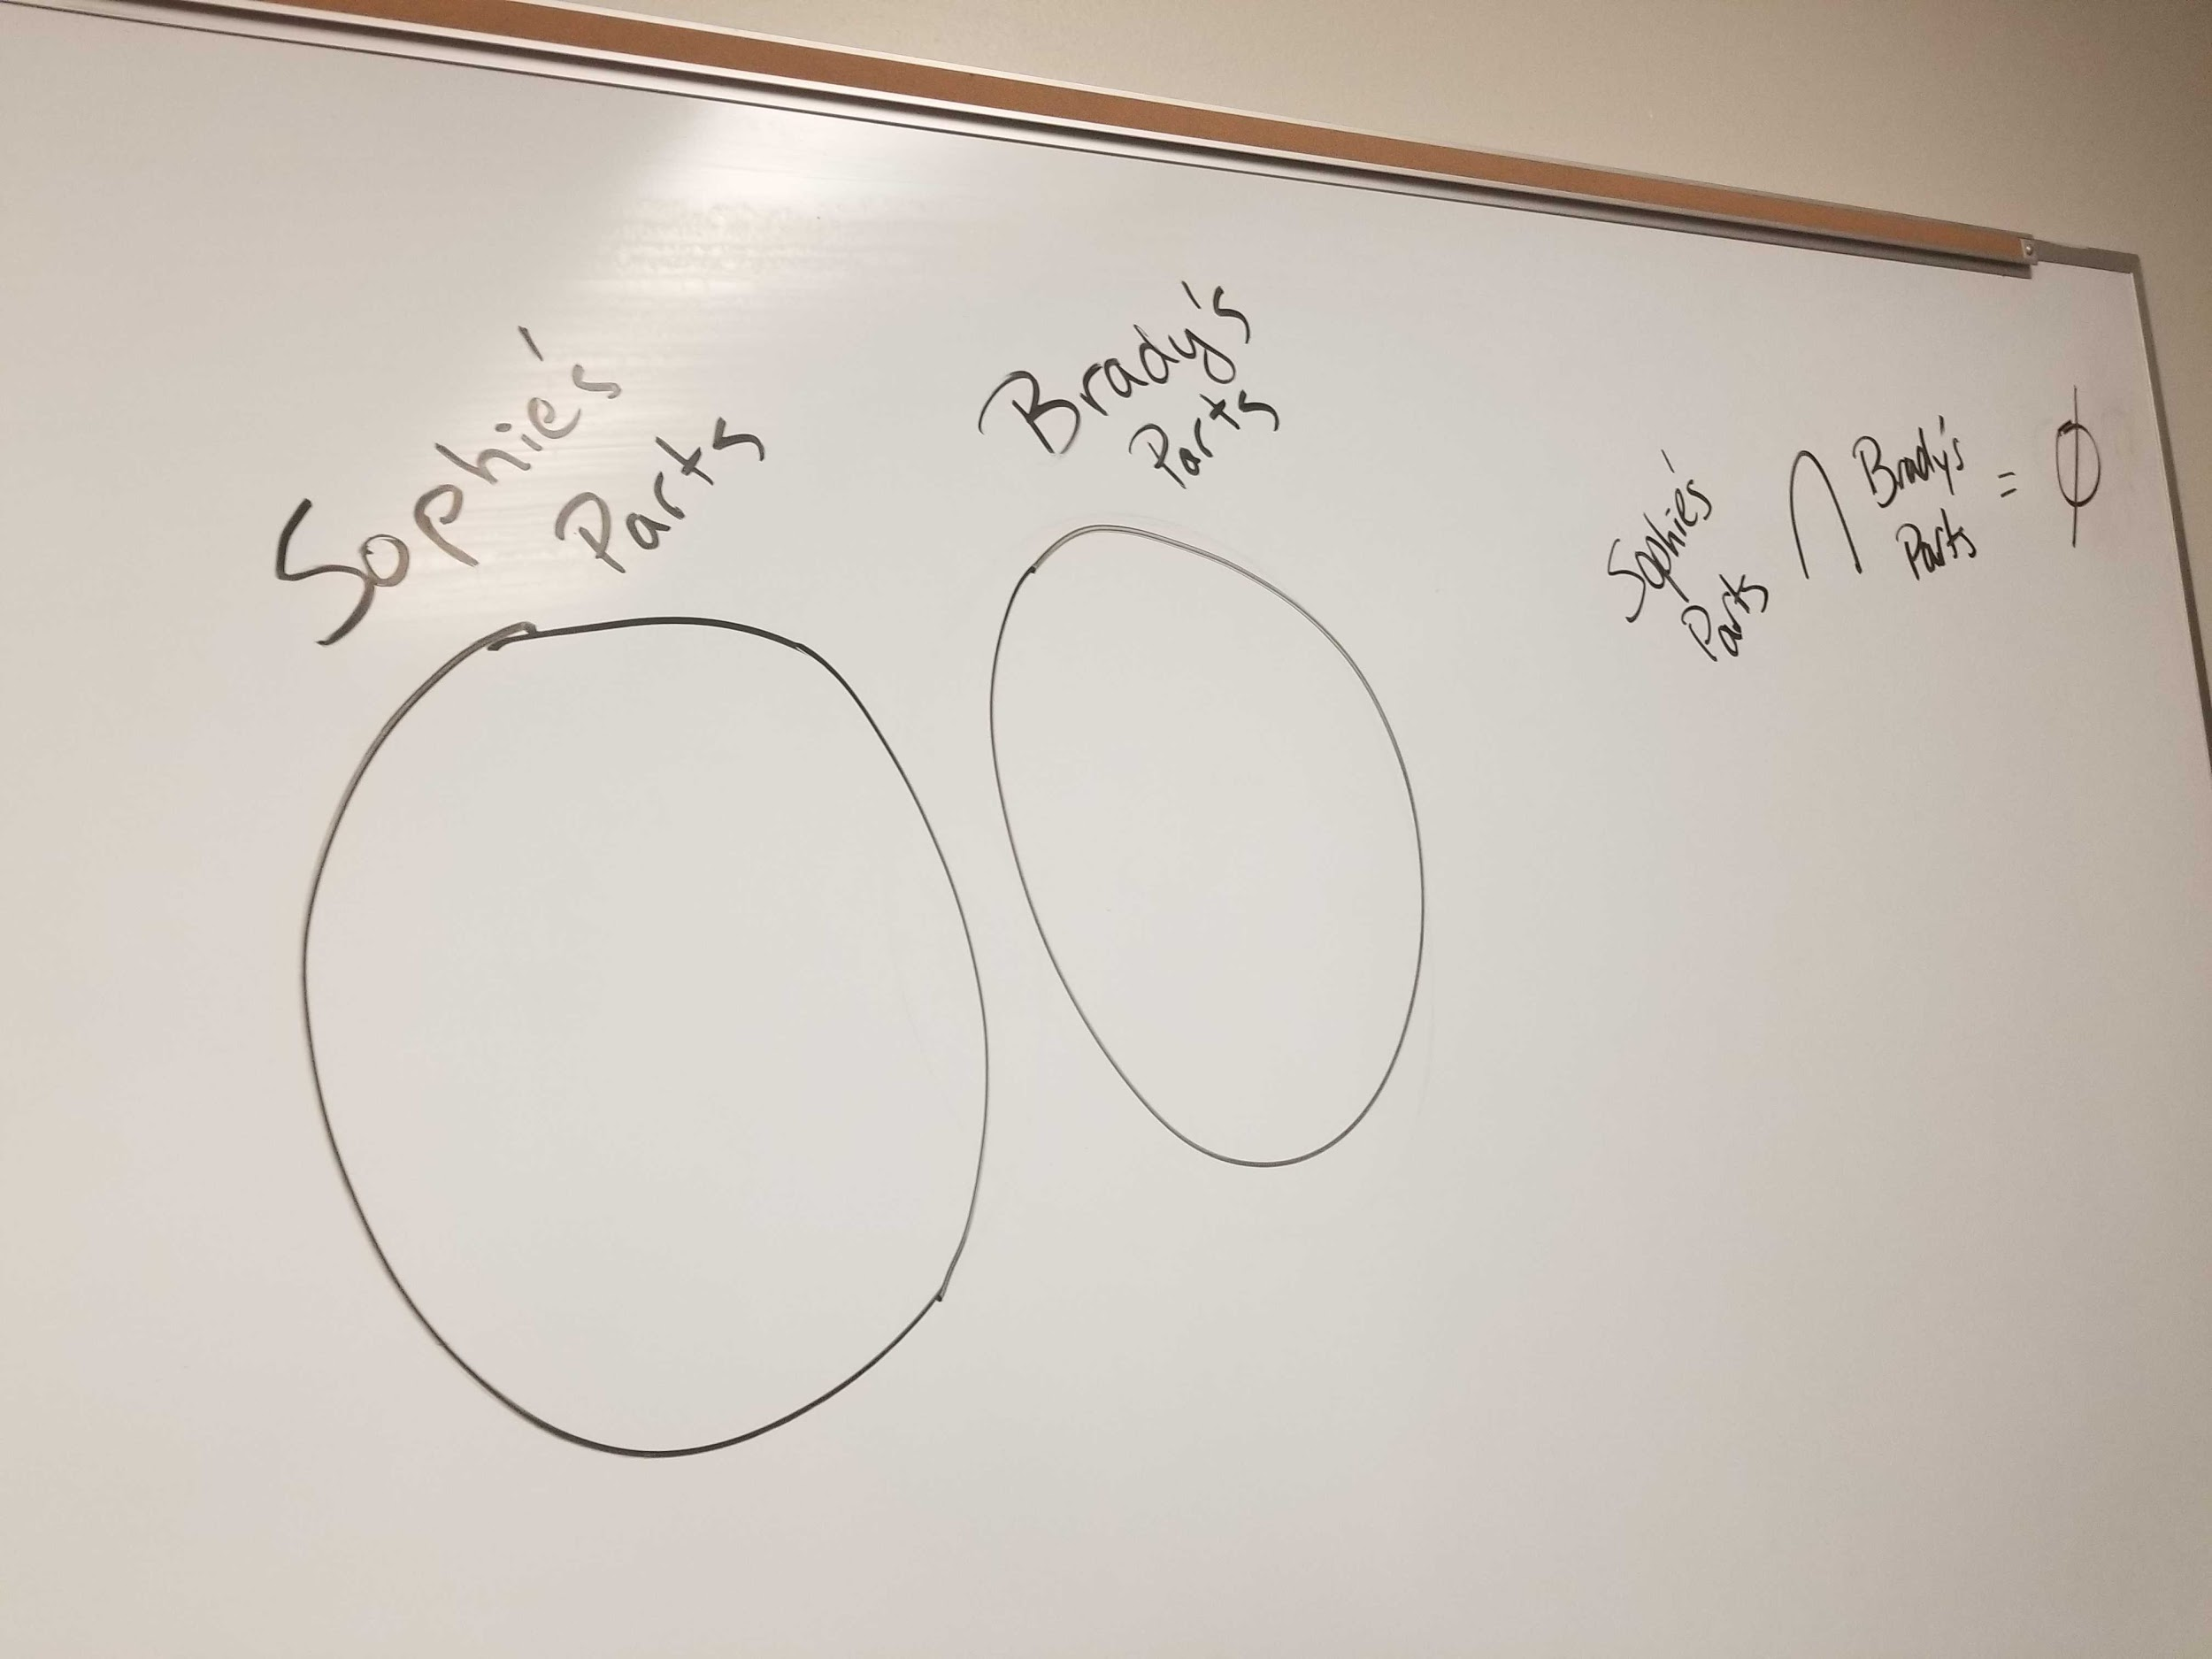 Sophie's
Parts
Brady's
Parts
Sophie's
Parts
∩
Brady's
Parts
= ∅